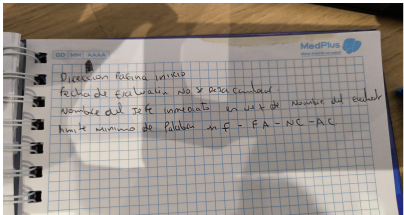 MedPlus
DD MM AAAA
Dirección Pagina inicio
Fecha de Evaluación No se deja Cambiar
Nombre del Jefe inmediato en vez de Nombre del
limite minimo de Palabras en F - FA - NC - AC